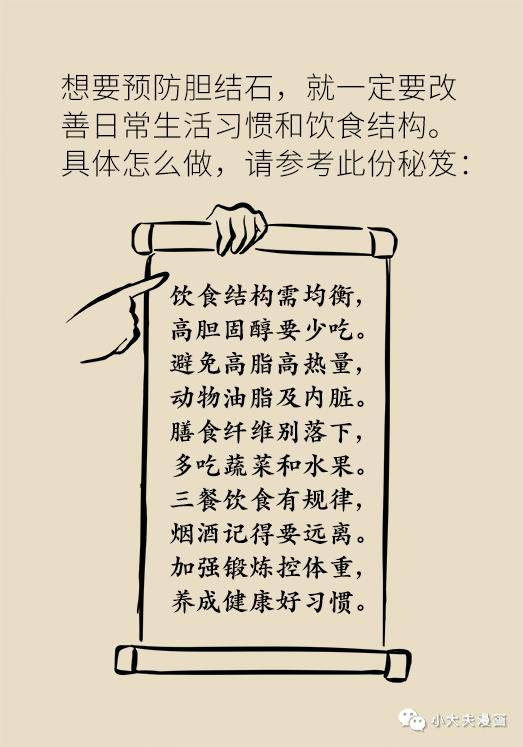 想要预防胆结石，就一定要改
善日常生活习惯和饮食结构。
具体怎么做，请参考此份秘笈：
饮食结构需均衡，
高胆固醇要少吃。
避免高脂高热量，
动物油脂及内脏。
膳食纤维别落下，
多吃蔬菜和水果。
三餐饮食有规律，
烟酒记得要远离。
加强锻炼控体重，
养成健康好习惯。
小大夫漫画